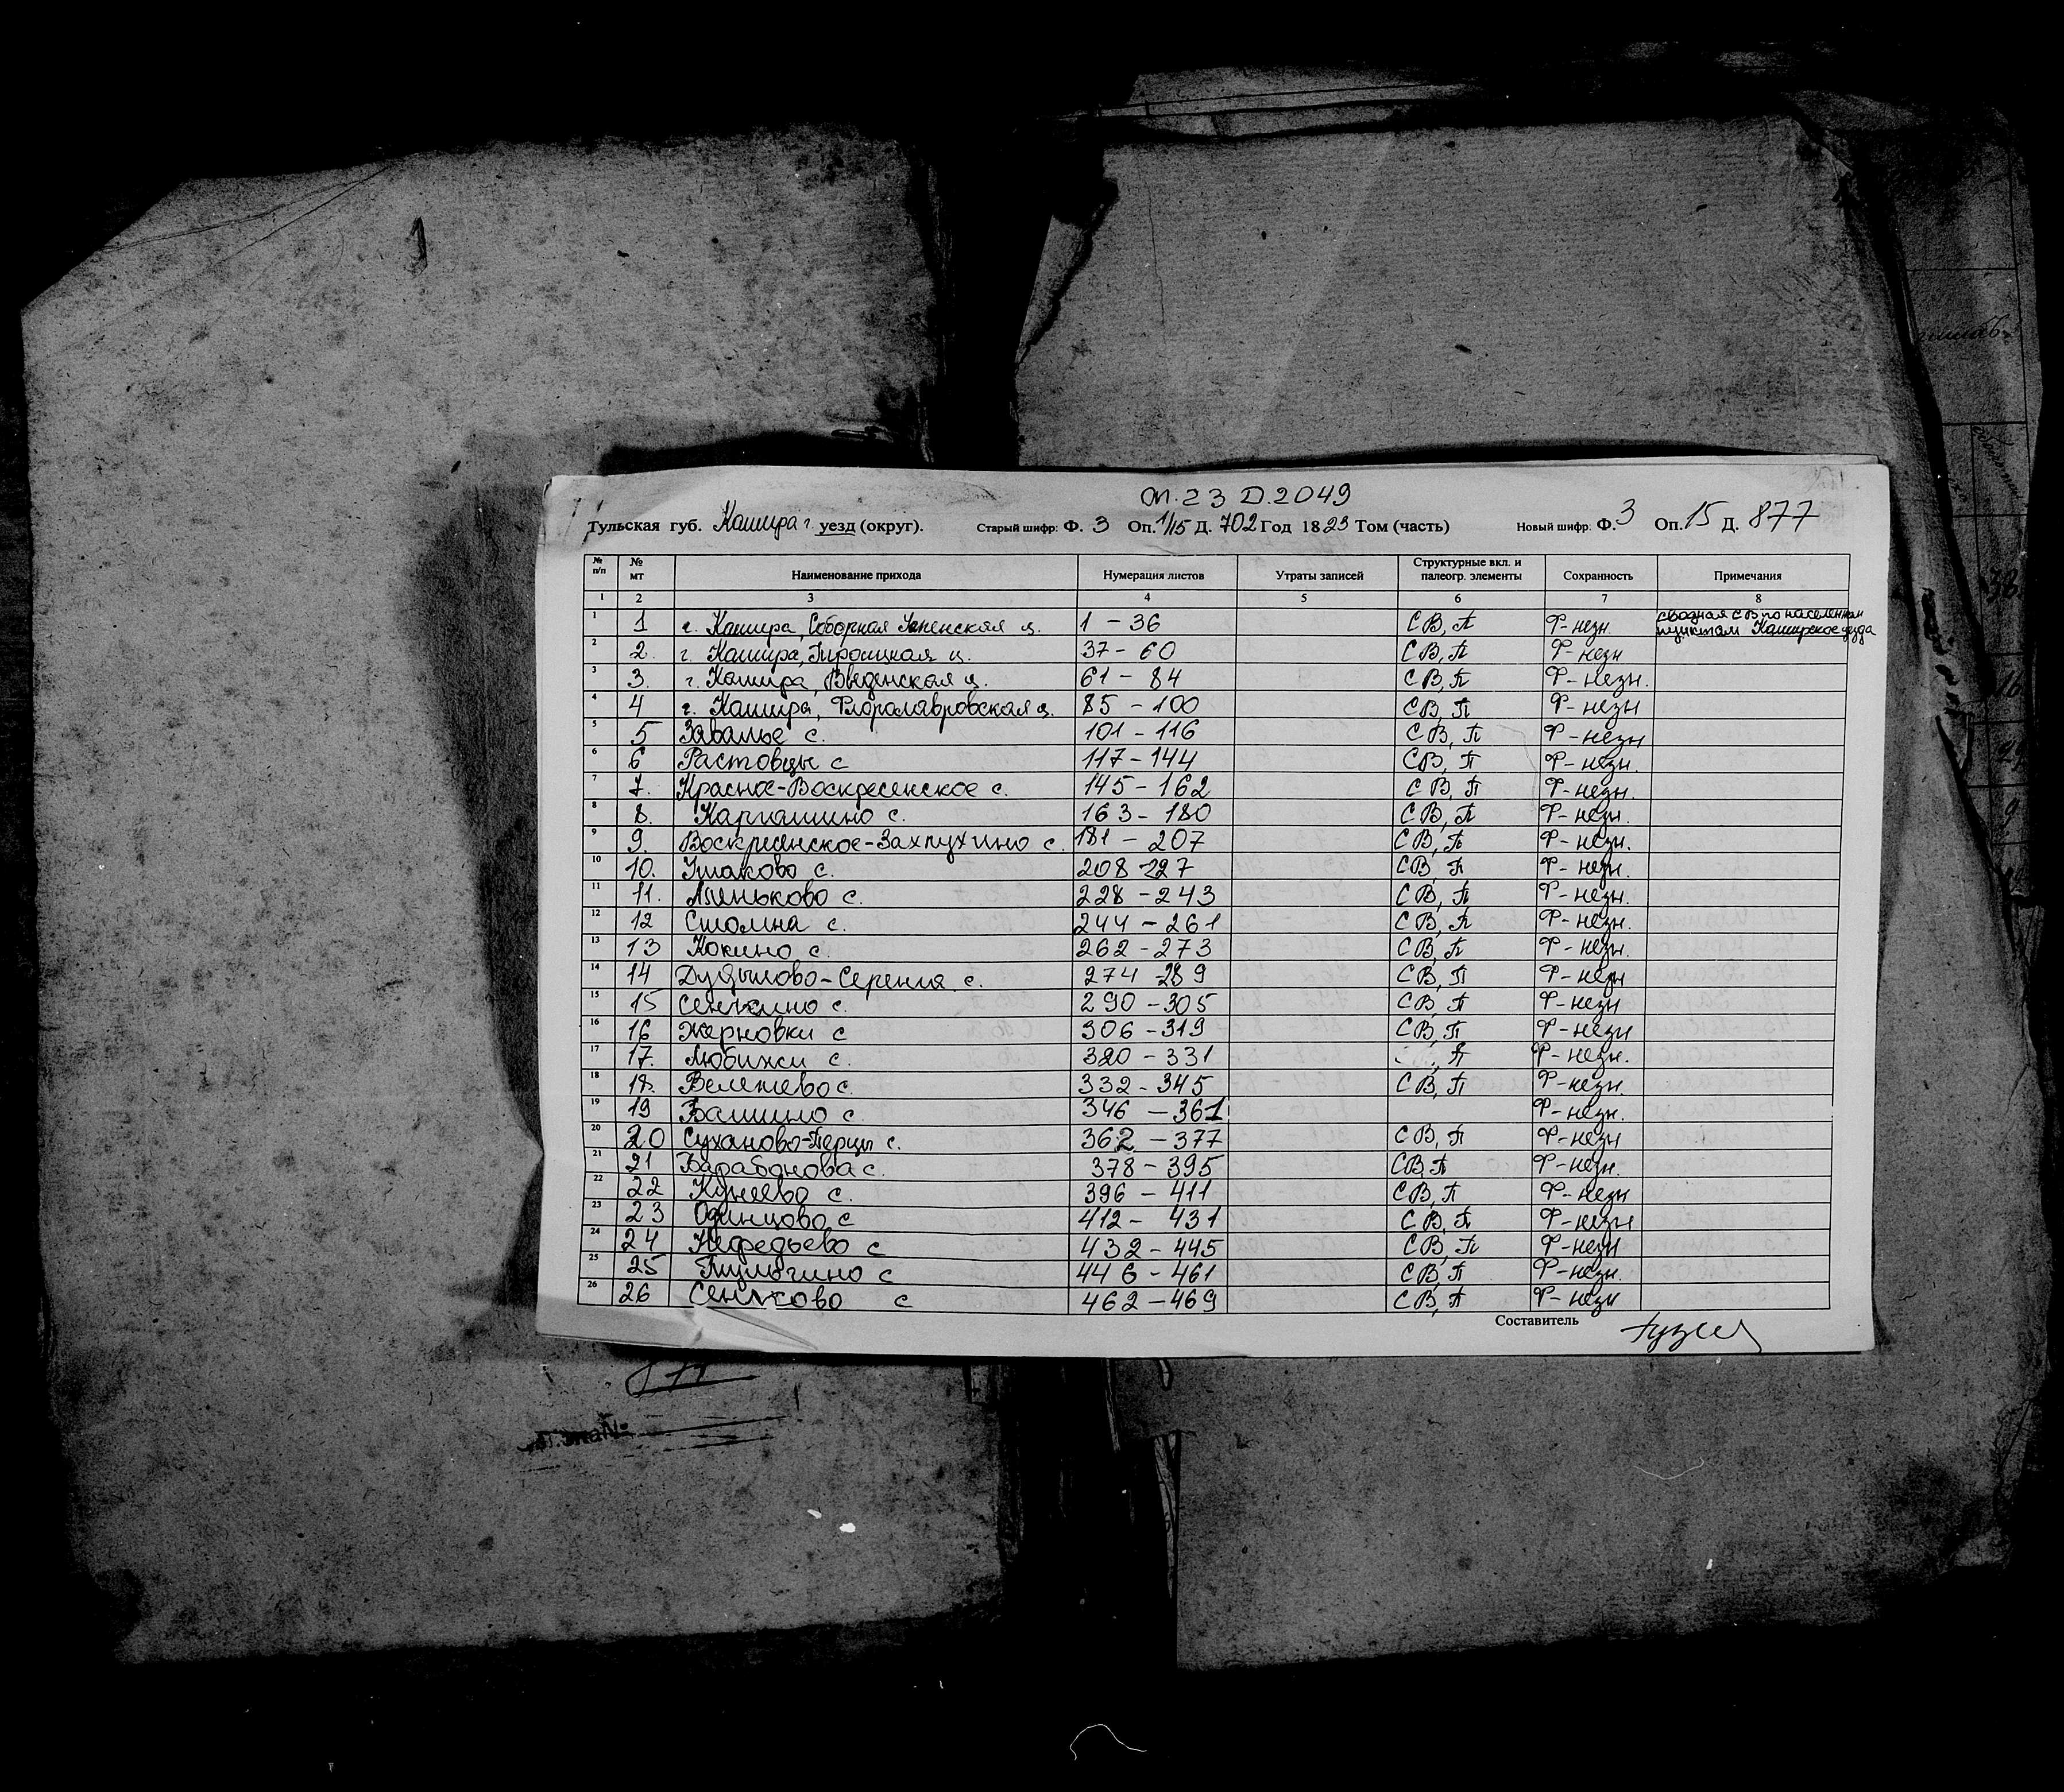 Оп. 23 Д. 2049
Тульская губ. Кашира г. уезд (округ). Старый шифр: Ф. 3 Оп. 1/15 Д. 702 Год 1823 Том (часть) Новый шифр: Ф. 3 Оп. 15 Д. 877
№ п/п № мт Наименование прихода Нумерация листов Утраты записей Структурные вкл. и палеогр. элементы Сохранность Примечания
1 2 3 4 5 6 7 8
1 1 г. Кашира, Соборная Успенская ц. 1 - 36 СВ, П Ф-незн. сводная СВ по населенным пунктам Каширского уезда
2 2. г. Кашира, Троицкая ц. 37 - 60 СВ, П Ф-незн
3 3. г. Кашира, Введенская ц. 61 - 84 СВ, П Ф-незн.
4 4 г. Кашира, Флоролавровская ц. 85 - 100 СВ, П Ф-незн
5 5 Завалье с. 101 - 116 СВ, П Ф-незн
6 6 Растовцы с 117 - 144 СВ, П Ф-незн.
7 7. Красное-Воскресенское с. 145 - 162 СВ, П Ф-незн.
8 8. Каргашино с. 163 - 180 СВ, П Ф-незн.
9 9. Воскресенское- с. 181 - 207 СВ, П Ф-незн.
10 10. с. 208 - 227 СВ, П Ф-незн.
11 11. с. 228 - 243 СВ, П Ф-незн.
12 12 с. 244 - 261 СВ, П Ф-незн.
13 13 Кокино с. 262 - 273 СВ, П Ф-незн.
14 14 с. 274 - 289 СВ, П Ф-незн
15 15 с. 290 - 305 СВ, П Ф-незн
16 16 Жерновки с 306 - 319 СВ, П Ф-незн
17 17. Любижи с. 320 - 331 П Ф-незн.
18 18. с. 332 - 345 СВ, П Ф-незн.
19 19 Башино с. 346 - 361 Ф-незн.
20 20 Суханово-Перцы с. 362 - 377 СВ, П Ф-незн
21 21 Барабанова с. 378 - 395 СВ, П Ф-незн.
22 22 Кунеево с. 396 - 411 СВ, П Ф-незн
23 23 Одинцово с 412 - 431 СВ, П Ф-незн
24 24 Нефедьево с 432 - 445 СВ, П Ф-незн
25 25 с 446 - 461 СВ, П Ф-незн.
26 26 Сеньково с 462 - 469 СВ, П Ф-незн
Составитель